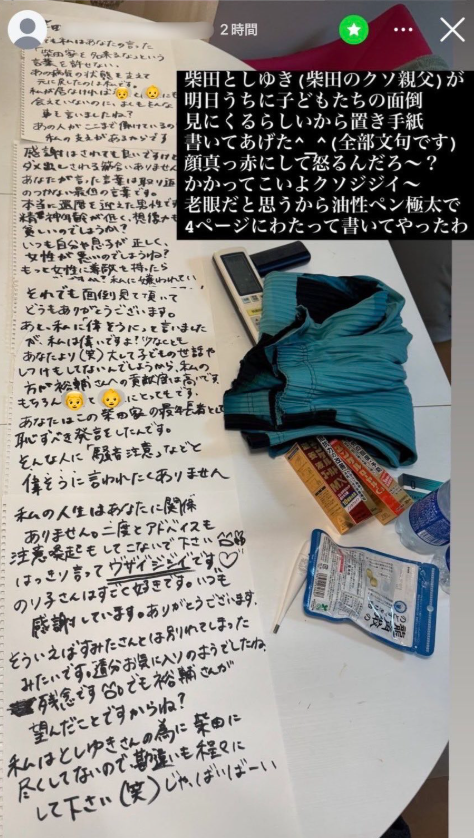 2時間
柴田としゆき(柴田のクソ親父)が
明日うちに子どもたちの面倒
見にくるらしいから置き手紙
書いてあげた^ ^(全部文句です)
顔真っ赤にして怒るんだろ〜？
かかってこいよクソジジイ〜
老眼だと思うから油性ペン極太で
4ページにわたって書いてやったわ
も私はあなたの言った
言葉を許せない。
元に戻したのは私です。
私が居なければ
会えていないのに、よくもそんな
事を言いましたね?
あの人がここまで働けているの
私の支えがあるからです
感謝はされても良いですけど
ダメ出しされる筋合いありません
あなたが言った言葉は取り返
のつかない最低の言葉です。
本当に還暦を迎えた男性です
精神年齢が低く、想像力も
貧しいのでしょうか?
いつも自分や息子が正しく、
女性が悪いのでしょうね?
もっと女性に敬意を持ったら
それでも面倒見て頂いて
どうもありがとうございます。
あと、私に偉そうにっと言いました
が、私は偉いですよ!少なくとも
あなたより(笑)大して子どもの世話や
しつけもしてないんでしょうから、私の
方が裕輔さんへの貢献度は高いです
もちろん と にとってもです。
あなたはこの柴田家の最年長者として
恥ずべき発言をしたんです。
そんな人に「騒音注意」などと
偉そうに言われたくありません
私の人生はあなたに関係
ありません。二度とアドバイスも
注意喚起もしてこないで下さい
はっきり言ってウザイジジイです♡
のり子さんはすごく好きです。いつも
感謝しています。ありがとうございます.
そういえばすみたさんとは別れてしまった
みたいです。随分お気に入りのようでしたね。
残念です でも裕輔さんが
望んだことですからね?
私はとしゆきさんの為に柴田に
尽くしてないので、勘違いも程々に
して下さい(笑)じゃ、ばいばーい
龍角散